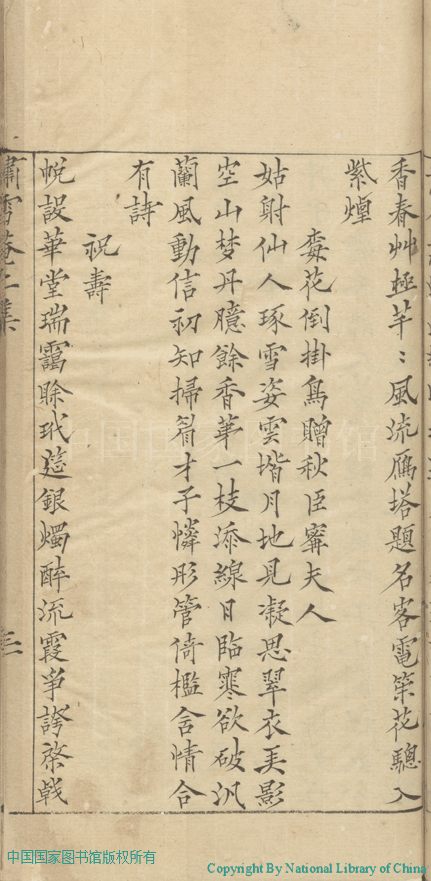 香春艸極芊〻風流鴈塔題名客電策花驄入
紫煌
梅花倒掛鳥贈秋臣甯夫人
姑射仙人琢雪姿雲堦月地見凝思翠衣美影
空山梦丹臆餘香華一枝添線日臨寒欲破汎
蘭風動信初知掃眉才子憐彤管倚檻含情合
有詩
祝壽
帨設華堂瑞靄賒玳筵銀燭醉流霞爭誇棨戟
中国国家图书馆
中国国家图书馆版权所有
Copyright By National Library of China